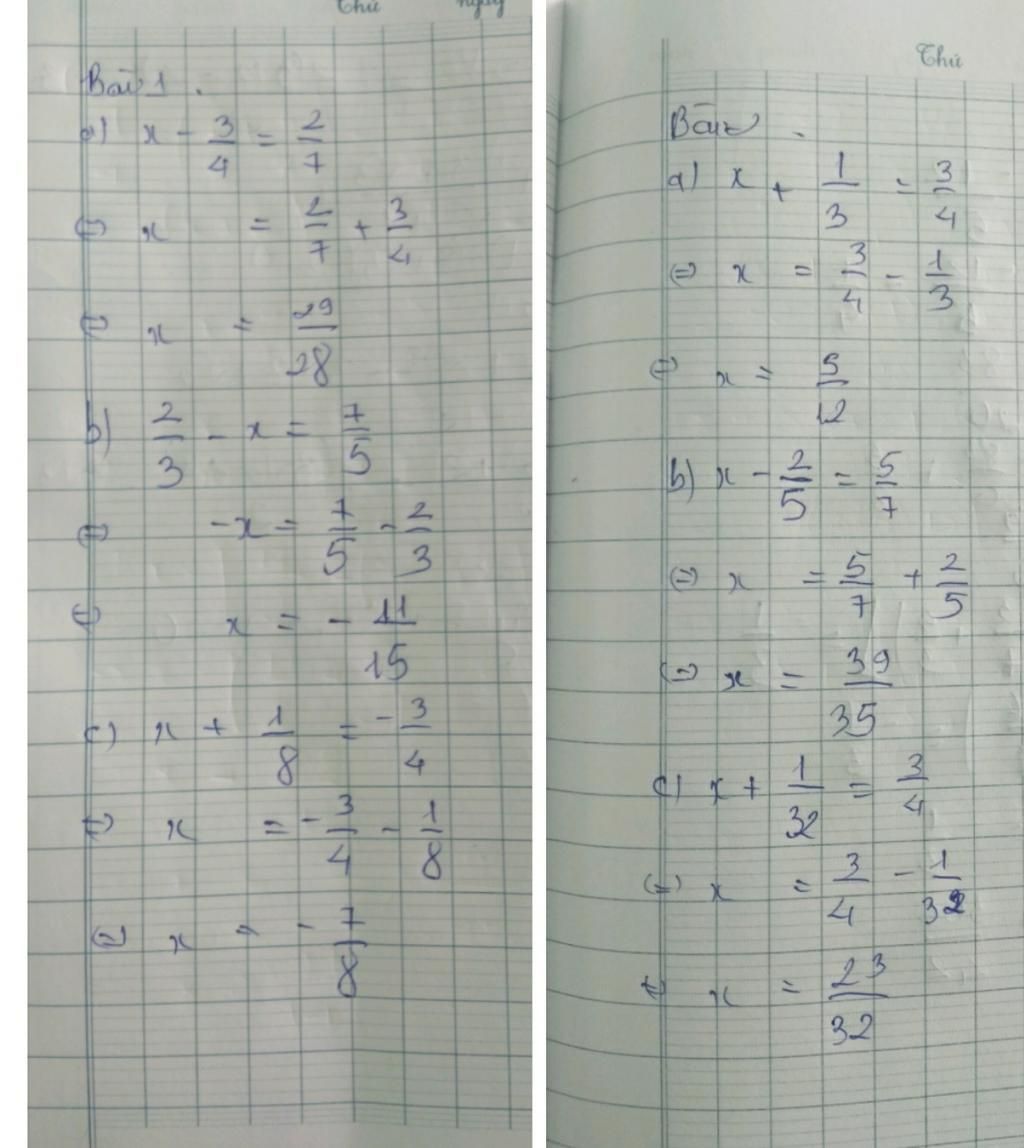 Thứ ngày
Bài 1.
a) x - 3/4 = 2/7
⇔ x = 2/7 + 3/4
⇔ x = 29/28
b) 2/3 - x = 7/5
⇔ -x = 7/5 - 2/3
⇔ x = - 11/15
c) x + 1/8 = - 3/4
⇔ x = - 3/4 - 1/8
⇔ x = - 7/8
Thứ
Bài 2.
a) x + 1/3 = 3/4
⇔ x = 3/4 - 1/3
⇔ x = 5/12
b) x - 2/5 = 5/7
⇔ x = 5/7 + 2/5
⇔ x = 39/35
c) x + 1/32 = 3/4
⇔ x = 3/4 - 1/32
⇔ x = 23/32